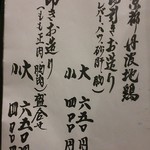 京都 丹波地鶏
引きお造り
レバー、ハツ、砂肝
大 六五〇円
小 四〇〇円
叩きお造り
(もも正肉、胸肉)盛合せ
大 六五〇円
小 四〇〇円